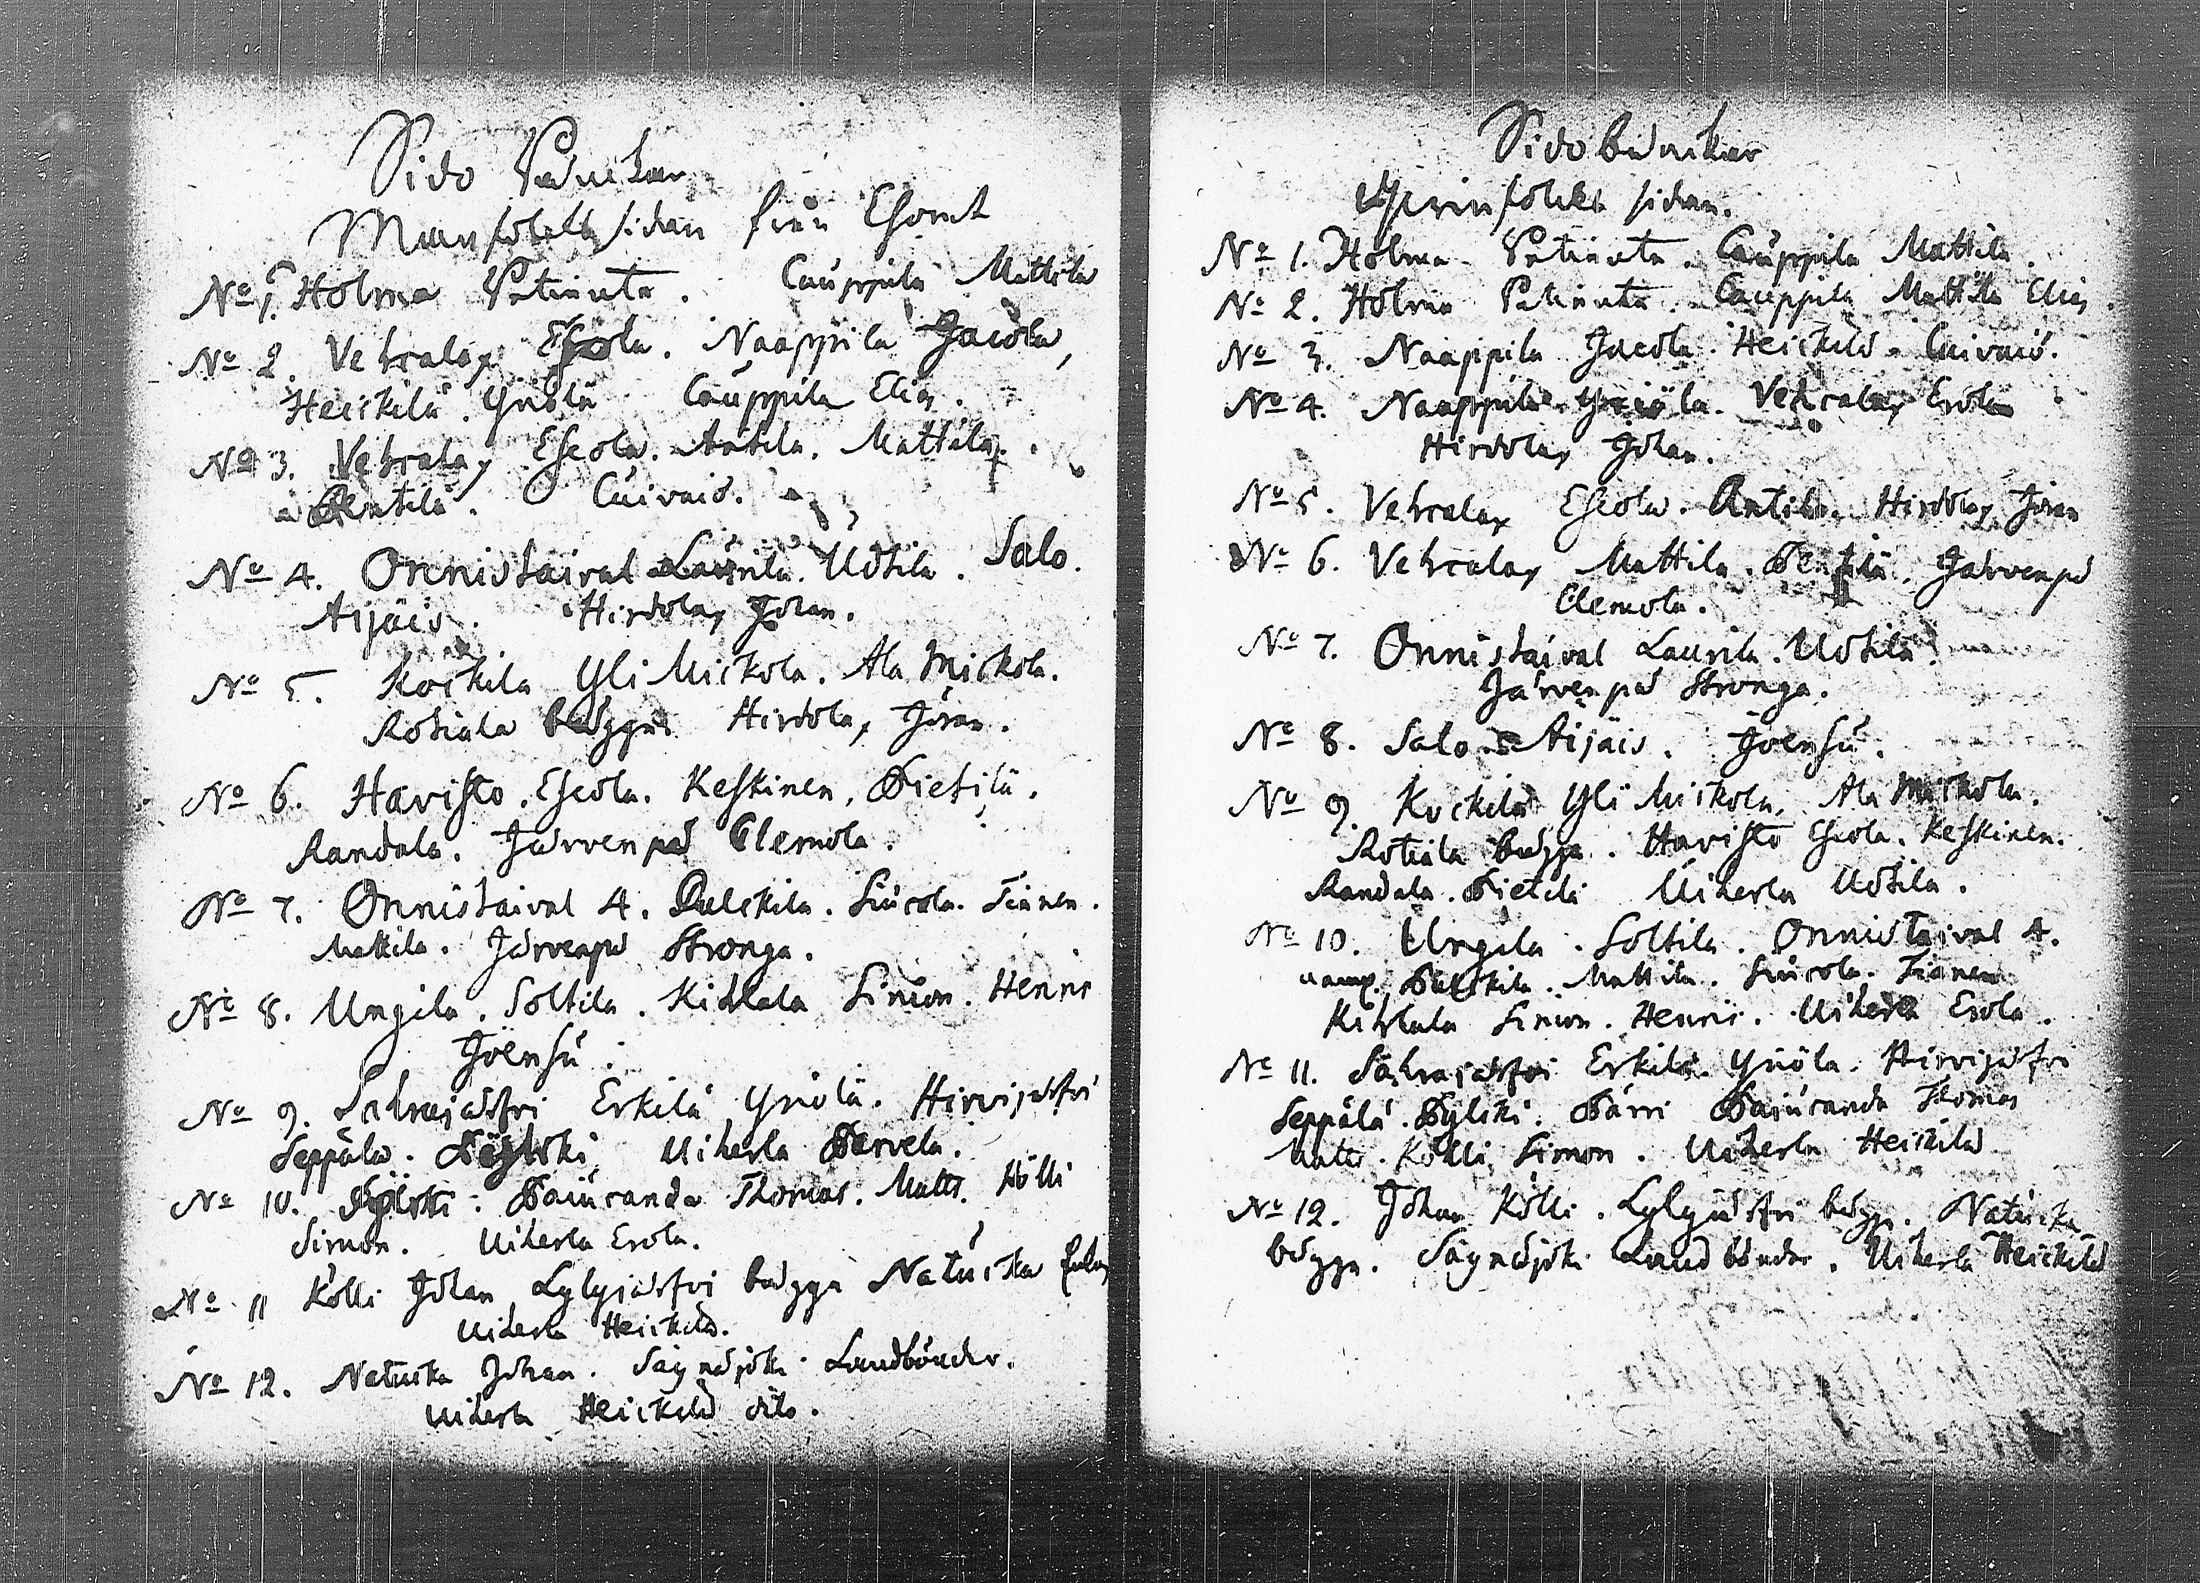 Sido Bänckar
Mansfolcks sidan från Choret
No 1. Holma Patinuta. Cauppila Mattila
No 2. Vehcalax Escola. Naappila Jacola,
Heickilä. Yriölä Cauppila Elias.
No 3. Vehcalax Escola. Antila. Mattila.
Pentilä. Cuivais.
No 4. Onnistaival Laurila. Uotila. Salo.
Aijäis. Hirvolax Johan.
No 5. Kockila Yli Mickola. Ala Mickola.
Rotiala bägge. Hirvolax Jöran.
No 6. Havisto. Escola. Keskinen. Pietilä.
Randala. Järvenpää Clemola.
No 7. Onnistaival 4. Palckila. Siucola. Tianen.
Mattila. Järvenpä Stronga.
No 8. Ungila. Soltila. Kihlala Simon. Henric
Joensu.
No 9. Sahrajärfvi Erkilä Yriölä. Hirvijärfvi
Seppälä. Pylcki. Uiherla Parvela.
No 10. Pylcki. Pajuranda Thomas. Matts. Kölli
Simon. Uiherla Erola.
No 11 Kölli Johan Lylyjärfvi bägge Natucka
Uiherla Heickilä.
No 12. Natucka Johan. Säynäjoki Landbönder.
Uiherla Heickilä dito.
Sido bänckar
Qvinfolcks sidan.
No 1. Holma Patinuta. Cauppila Mattila.
No 2. Holma Patinuta. Cauppila Mattila Elias.
No 3. Naappila Jacola. Heickilä. Cuivais.
No 4. Naappila Yriölä. Vehcalax Erola
Hirvolax Johan.
No 5. Vehcalax Escola. Antila. Hirvolax Jöran
No 6. Vehcalax Mattila. Pentilä. Järvenpä
Clemola.
No 7. Onnistaival Laurila. Uotila.
Järvenpä Stronga.
No 8. Salo. Aijäis. Joensu.
No 9. Kockila Yli Mickola. Ala Mickola.
Rotiala bägge. Havisto Escola. Keskinen.
Randala. Pietilä Uiherla Uotila.
No 10. Ungila. Soltila. Onnistaival 4.
Palckila. Mattila. Siucola. Tianen
Kihlala Simon. Henric. Uiherla Erola.
No 11. Sahrajärfvi Erkilä. Yriölä. Hirvijärfvi
Seppälä. Pylcki. Pärri Pajuranda Thomas
Matts. Kölli Simon. Uiherla Heickilä
No 12. Johan Kölli. Lylyjärfvi bägge. Natucka
bägge. Säynäjoki Landbönder. Uiherla Heickilä